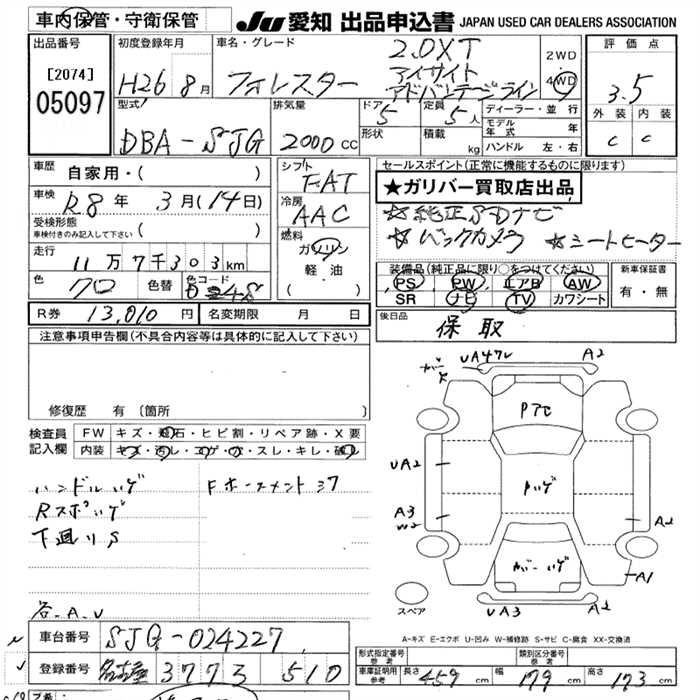 車内保管・守衛保管
JU 愛知 出品申込書 JAPAN USED CAR DEALERS ASSOCIATION
出品番号 初度登録年月 車名・グレード 評価点
[2074]
05097
H26 8月 フォレスター 2.0XT
アイサイト
アドバンテージライン
2WD
4WD
3.5
型式 排気量 ドア 定員 ディーラー・並行 外装 内装
DBA-SJG 2000cc 5 5人 モデル年式 C C
形状 積載 kg ハンドル 左・右
車歴 自家用・( )
シフト FAT
セールスポイント(正常に機能するものに限ります)
★ガリバー買取店出品
車検 R8年 3月(14日)
冷房 AAC
☆純正SDナビ
受検形態
車検付きのみ記入して下さい ( )
燃料 ガソリン
軽油
( )
☆バックカメラ ☆シートヒーター
走行 11万7千303km
装備品(純正品に限り○をつけてください) 新車保証書
色 クロ 色替 色コード
PS PW エアB AW 有・無
SR ナビ TV カワシート
R券 13,010円 名変期限 月 日
後日品 保取
注意事項申告欄(不具合内容等は具体的に記入して下さい)
修復歴 有 [箇所 ]
検査員 FW キズ・飛石・ヒビ割・リペア跡・X要
記入欄 内装 キズ・汚レ・コゲ・穴・スレ・キレ・破レ
ハンドルハゲ
Rスポハゲ
下廻りS
各-A.U
UA47レ A2
UA2
A3
W2
A2
A1
UA3 A2
スペア
A-キズ E-エクボ U-凹み W-補修跡 S-サビ C-腐食 XX-交換済
車台番号 SJG-024227
登録番号 名古屋 3773 510
形式指定番号
参考
類別区分番号
参考
車庫証明用
参考
長さ 459cm 幅 179cm 高さ 173cm